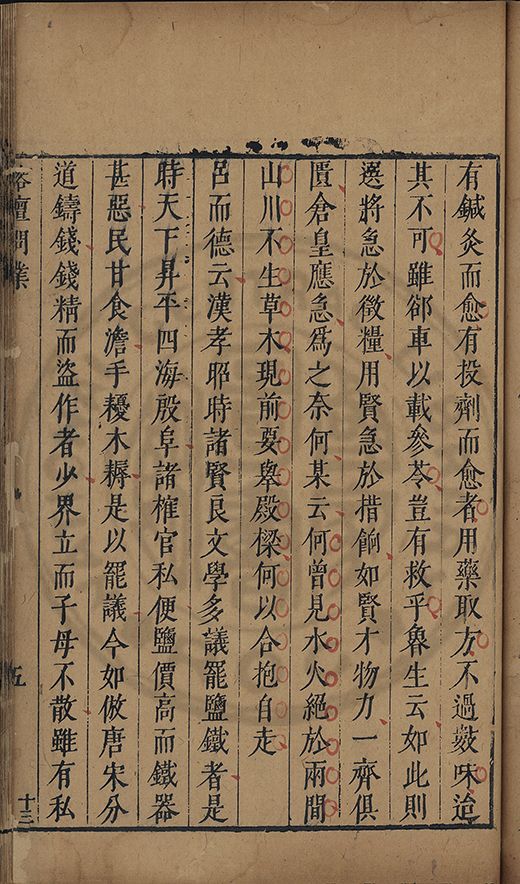 有鍼灸而愈有投劑而愈者用藥取方不過數味迨
其不可雖郤車以載參苓豈有救乎魯生云如此則
選將急於徵糧用賢急於措餉如賢才物力一齊俱
匱倉皇應急爲之奈何某云何曾見水火絕於兩間
山川不生草木現前要舉殿樑何以合抱自走
呂而德云漢孝昭時諸賢良文學多議罷鹽鐵者是
時天下昇平四海殷阜諸榷官私便鹽價高而鐵器
甚惡民甘食澹手耰木耨是以罷議今如倣唐宋分
道鑄錢錢精而盜作者少界立而子母不散雖有私
榕壇問業
五
十三